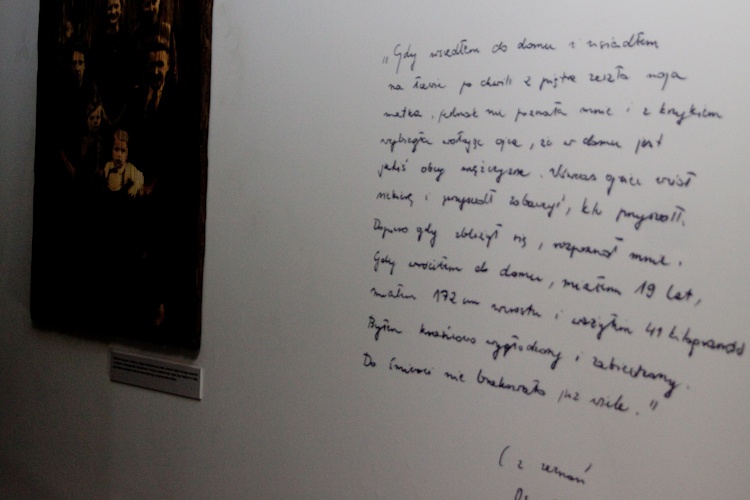 „Gdy wszedłem do domu i usiadłem
na ławie po chwili z piętra zeszła moja
matka, jednak nie poznała mnie i z krzykiem
wybiegła wołając ojca, że w domu jest
jakiś obcy mężczyzna. Wówczas ojciec wziął
siekierę i przyszedł zobaczyć, kto przyszedł.
Dopiero gdy zbliżył się, rozpoznał mnie.
Gdy wróciłem do domu, miałem 19 lat,
miałem 172 cm wzrostu i ważyłem 41 kilogramów
Byłem krańcowo wygłodzony i zabiedzony.
Do śmierci nie brakowało już wiele."
(z zeznań